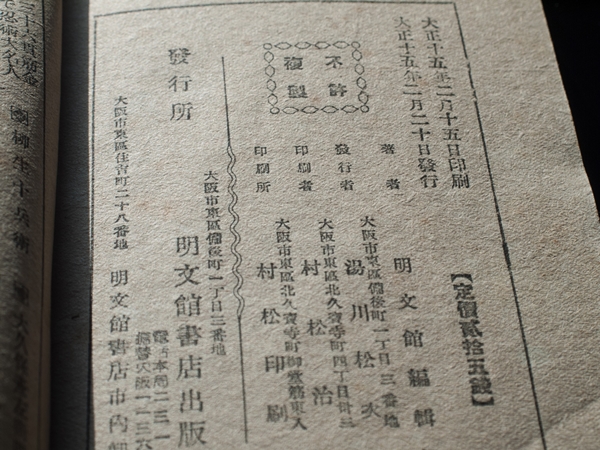 大正十五年二月十五日印刷
大正十五年二月二十日發行
【定價貳拾五錢】
不許
複製
著者
明文館編輯
大阪市東區備後町一丁目三番地
發行者
湯川松次
大阪市東區北久寶寺町四丁目卅三
印刷者
村松治
大阪市東區北久寶寺町御堂筋東入
印刷所
村松印刷
大阪市東區備後町一丁目三番地
發行所
明文館書店出版
電話本局二三一
振替大阪一一三六
大阪市東區住吉町二十八番地
明文館書店市內